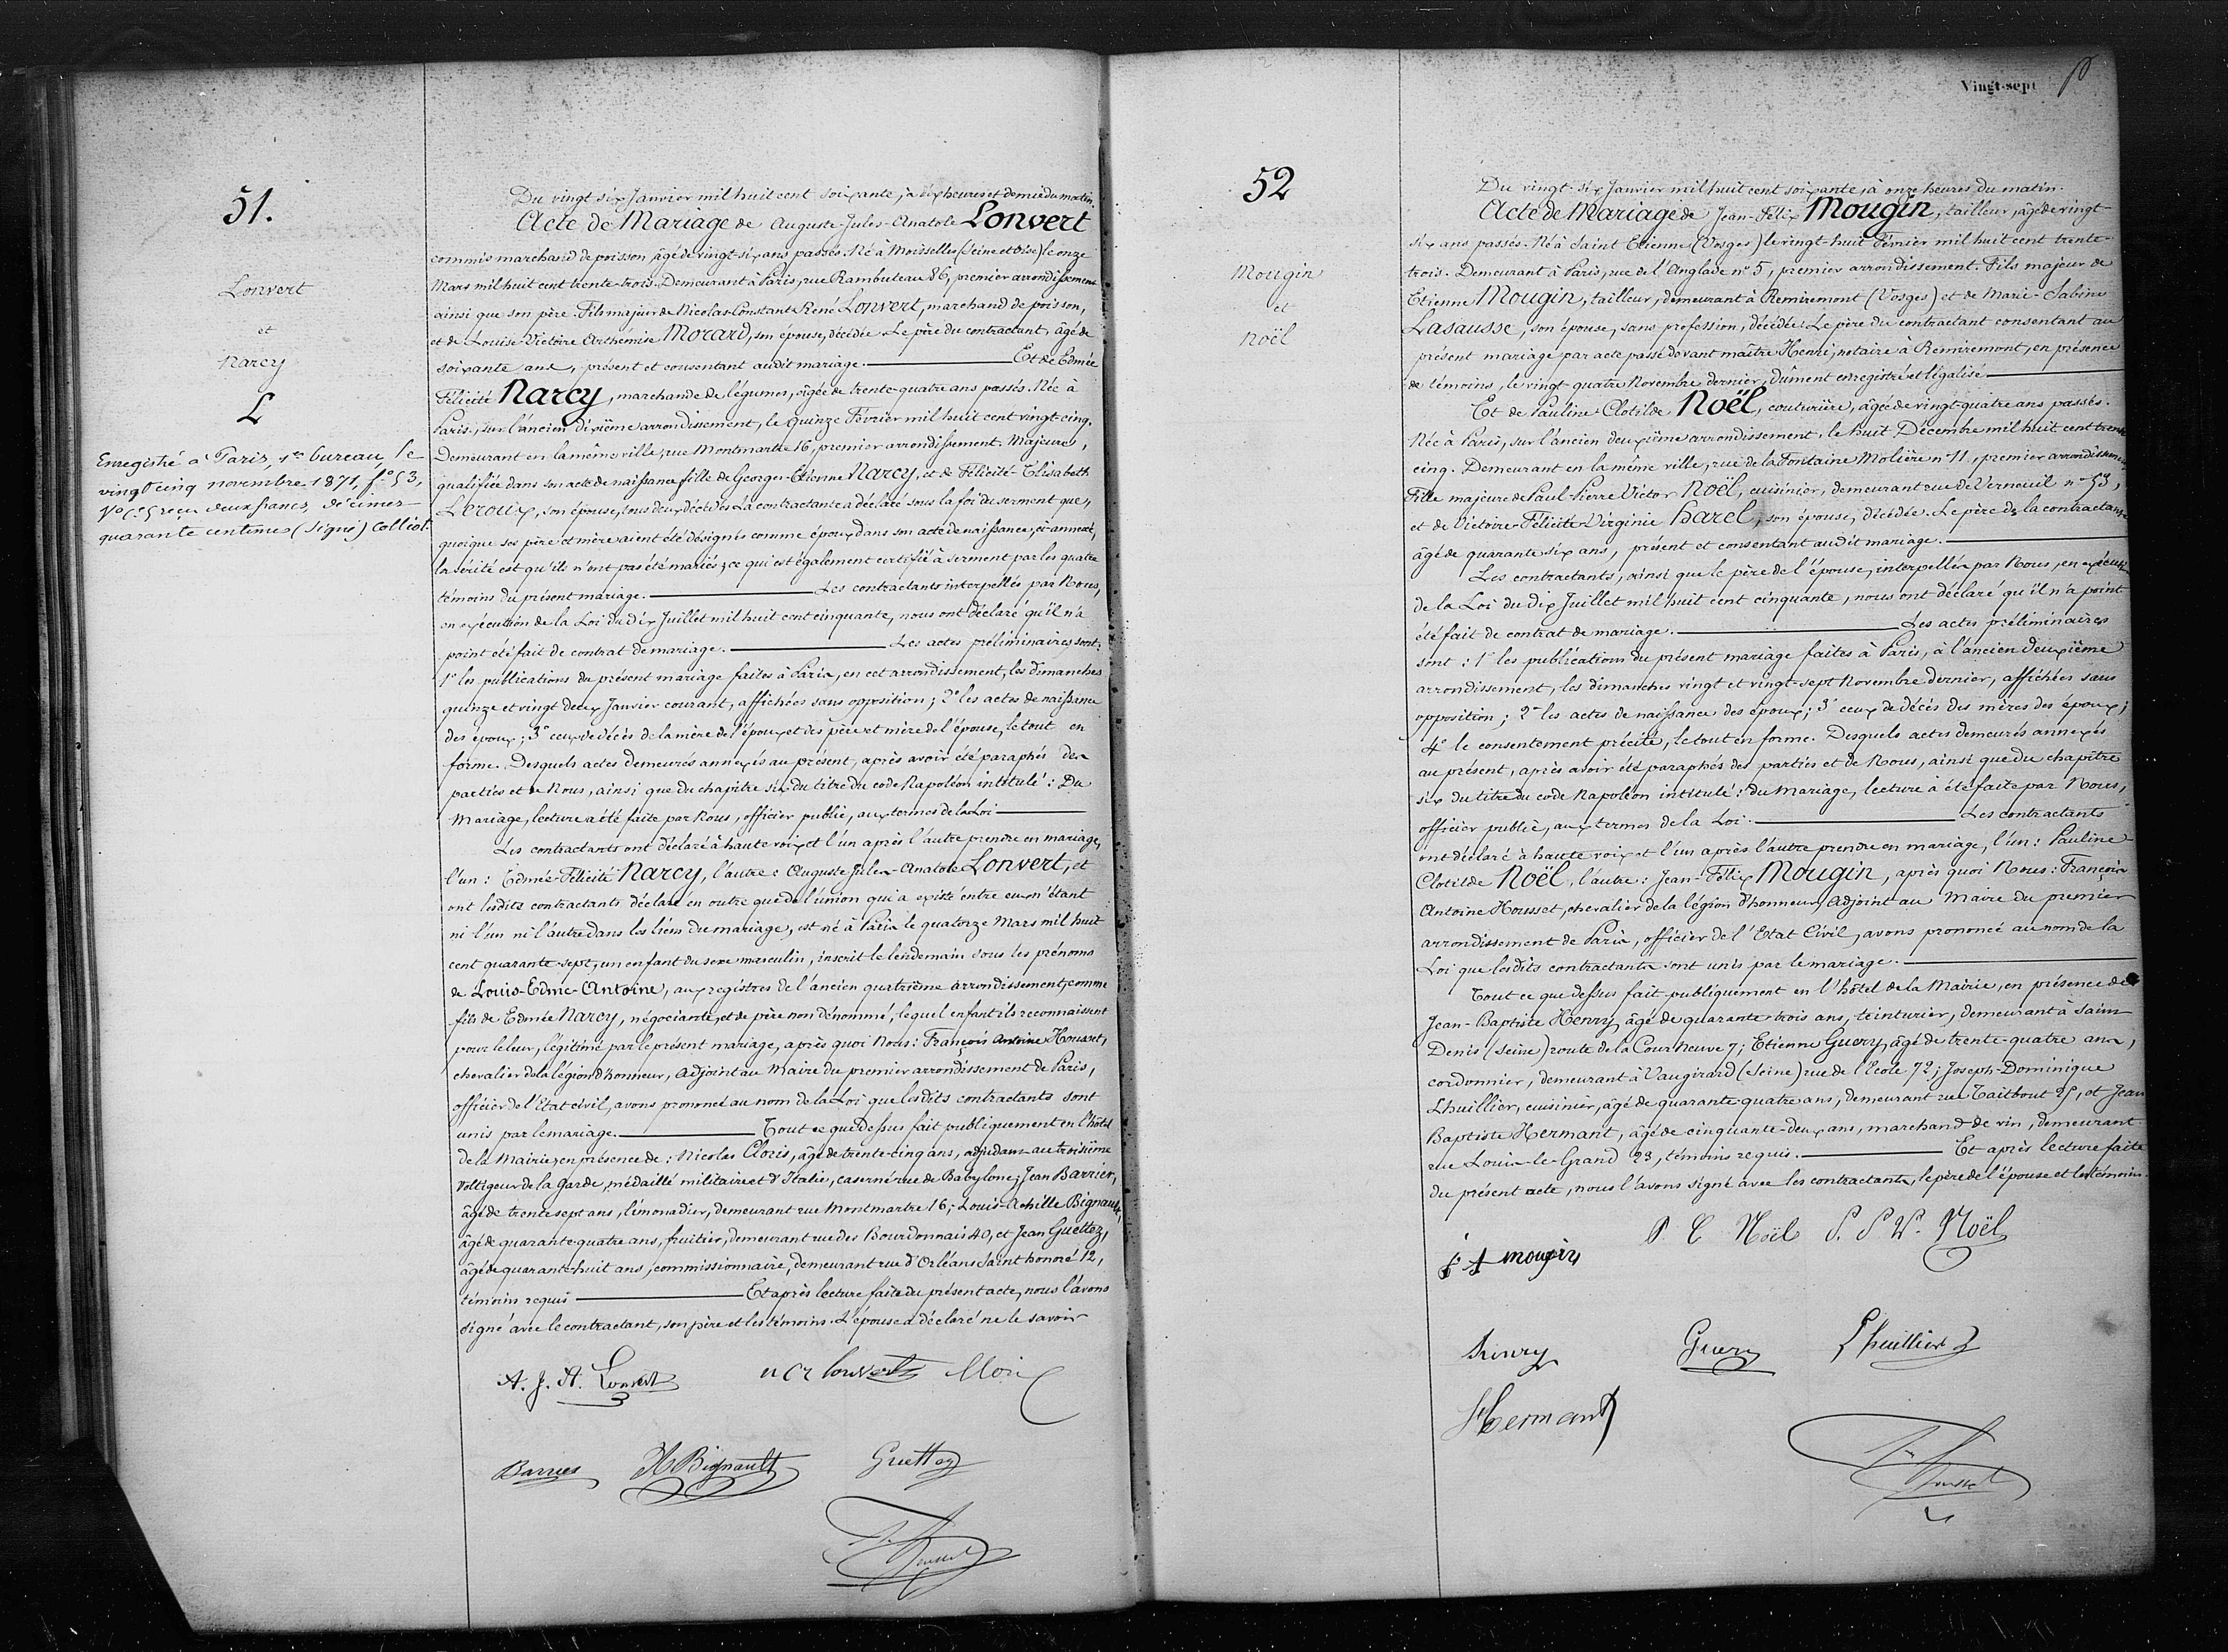 51.
Lonvert
et
Narcy
L
Enregistré à Paris, 1er bureau, le
vingt cinq novembre 1871, f° 53,
V° C. 5 reçu deux francs, décimes
quarante centimes (signé) Colliot
Du vingt six Janvier mil huit cent soixante, à dix heures et demie du matin.
Acte de Mariage de Auguste-Jules-Anatole Lonvert
commis marchand de poisson âgé de vingt-six ans passés. Né à Moisselles (Seine et Oise) le onze
Mars mil huit cent trente-trois. Demeurant à Paris, rue Rambuteau 86, premier arrondissement
ainsi que son père. Fils majeur de Nicolas Constant René Lonvert, marchand de poisson,
et de Louise Victoire Arthémise Morard, son épouse, décédée. Le père du contractant, âgé de
soixante ans, présent et consentant audit mariage. Et de Edmée
Félicité Narcy, marchande de légumes, âgée de trente-quatre ans passés. Née à
Paris, sur l'ancien dixième arrondissement, le quinze Février mil huit cent vingt-cinq.
Demeurant en la même ville, rue Montmartre 16, premier arrondissement. Majeure,
qualifiée dans son acte de naissance fille de Georges-Etienne Narcy, et de Félicité-Elisabeth
Leroux, son épouse, tous deux décédés. La contractante a déclaré sous la foi du serment que,
quoique ses père et mère aient été désignés comme époux dans son acte de naissance, ci-annexé,
la vérité est qu'ils n'ont pas été mariés; ce qui est également certifié à serment par les quatre
témoins du présent mariage. Les contractants interpellés par Nous,
en exécution de la Loi du dix Juillet mil huit cent cinquante, nous ont déclaré qu'il n'a
point été fait de contrat de mariage. Les actes préliminaires sont:
1° les publications du présent mariage faites à Paris, en cet arrondissement, les dimanches
quinze et vingt deux Janvier courant, affichées sans opposition; 2° les actes de naissance
des époux; 3° ceux de décès de la mère de l'époux et des père et mère de l'épouse, le tout en
forme. Desquels actes demeurés annexés au présent, après avoir été paraphés des
parties et de Nous, ainsi que du chapitre six du titre du code Napoléon intitulé: Du
Mariage, lecture a été faite par Nous, officier public, aux termes de la Loi
Les contractants ont déclaré à haute voix et l'un après l'autre prendre en mariage,
l'un: Edmée-Félicité Narcy, l'autre: Auguste Jules-Anatole Lonvert, et
ont lesdits contractants déclaré en outre que de l'union qui a existé entre eux n'étant
ni l'un ni l'autre dans les liens du mariage, est né à Paris le quatorze Mars mil huit
cent quarante-sept, un enfant du sexe masculin, inscrit le lendemain sous les prénoms
de Louis-Edme-Antoine, aux registres de l'ancien quatrième arrondissement, comme
fils de Edmée Narcy, négociante, et de père non dénommé, lequel enfant ils reconnaissent
pour le leur, légitimé par le présent mariage, après quoi Nous: François Antoine Housset,
chevalier de la légion d'honneur, Adjoint au Maire du premier arrondissement de Paris,
officier de l'Etat civil, avons prononcé au nom de la Loi que lesdits contractants sont
unis par le mariage. Tout ce que dessus fait publiquement en l'hôtel
de la Mairie, en présence de: Nicolas Cloris, âgé de trente-cinq ans, adjudant au troisième
Voltigeur de la Garde, médaillé militaire et d'Italie, caserné rue de Babylone; Jean Barrier,
âgé de trente sept ans, limonadier, demeurant rue Montmartre 16; Louis-Achille Bignault,
âgé de quarante quatre ans, fruitier, demeurant rue des Bourdonnais 40, et Jean Guettez,
âgé de quarante-huit ans, commissionnaire, demeurant rue d'Orléans Saint honoré 12,
témoins requis Et après lecture faite du présent acte, nous l'avons
signé avec le contractant, son père et les témoins. L'épouse a déclaré ne le savoir
A. J. A. Lonvert n cr lonvert
Barrier A Bignault Guettez
Housset
Vingt-sept
52
Mougin
et
Noël
Du vingt-six Janvier mil huit cent soixante, à onze heures du matin.
Acte de Mariage de Jean-Félix Mougin, tailleur, âgé de vingt
six ans passés. Né à Saint Etienne (Vosges) le vingt-huit Février mil huit cent trente-
trois. Demeurant à Paris, rue de l'Anglade n° 5, premier arrondissement. Fils majeur de
Etienne Mougin, tailleur, demeurant à Remiremont (Vosges) et de Marie-Sabine
Lasausse, son épouse, sans profession, décédée. Le père du contractant consentant au
présent mariage par acte passé devant maître Henri, notaire à Remiremont, en présence
de témoins, le vingt quatre Novembre dernier, dûment enregistré et légalisé
Et de Pauline Clotilde Noël, couturière, âgée de vingt-quatre ans passés.
Née à Paris, sur l'ancien deuxième arrondissement, le huit Décembre mil huit cent trente
cinq. Demeurant en la même ville, rue de la Fontaine Molière n° 11, premier arrondissement
Fille majeure de Paul Pierre Victor Noël, cuisinier, demeurant rue de Verneuil n° 53,
et de Victoire-Félicité Virginie Harel, son épouse, décédée. Le père de la contractante
âgé de quarante six ans, présent et consentant audit mariage.
Les contractants, ainsi que le père de l'épouse, interpellés par Nous, en exécution
de la Loi du dix Juillet mil huit cent cinquante, nous ont déclaré qu'il n'a point
été fait de contrat de mariage. Les actes préliminaires
sont: 1° les publications du présent mariage faites à Paris, à l'ancien deuxième
arrondissement, les dimanches vingt et vingt-sept Novembre dernier, affichées sans
opposition; 2° les actes de naissance des époux; 3° ceux de décès des mères des époux;
4° le consentement précité, le tout en forme. Desquels actes demeurés annexés
au présent, après avoir été paraphés des parties et de Nous, ainsi que du chapitre
six du titre du code Napoléon intitulé: du Mariage, lecture a été faite par Nous,
officier public, aux termes de la Loi. Les contractants
ont déclaré à haute voix et l'un après l'autre prendre en mariage, l'un: Pauline
Clotilde Noël, l'autre: Jean-Félix Mougin, après quoi Nous: François
Antoine Housset, chevalier de la légion d'honneur, Adjoint au Maire du premier
arrondissement de Paris, officier de l'Etat Civil, avons prononcé au nom de la
Loi que lesdits contractants sont unis par le mariage.
Tout ce que dessus fait publiquement en l'hôtel de la Mairie, en présence de
Jean-Baptiste Henry, âgé de quarante-trois ans, teinturier, demeurant à Saint
Denis (Seine) route de la Cour Neuve 7; Etienne Guery, âgé de trente-quatre ans,
cordonnier, demeurant à Vaugirard (Seine) rue de l'Ecole 72; Joseph-Dominique
Lhuillier, cuisinier, âgé de quarante-quatre ans, demeurant rue Taitbout 25, et Jean
Baptiste Hermant, âgé de cinquante-deux ans, marchand de vin, demeurant
rue Louis-le-Grand 23, témoins requis. Et après lecture faite
du présent acte, nous l'avons signé avec les contractants, le père de l'épouse et les témoins.
mougin P C Noël P. P V. Noël
henry Guery Lhuillier
Hermant
Housset